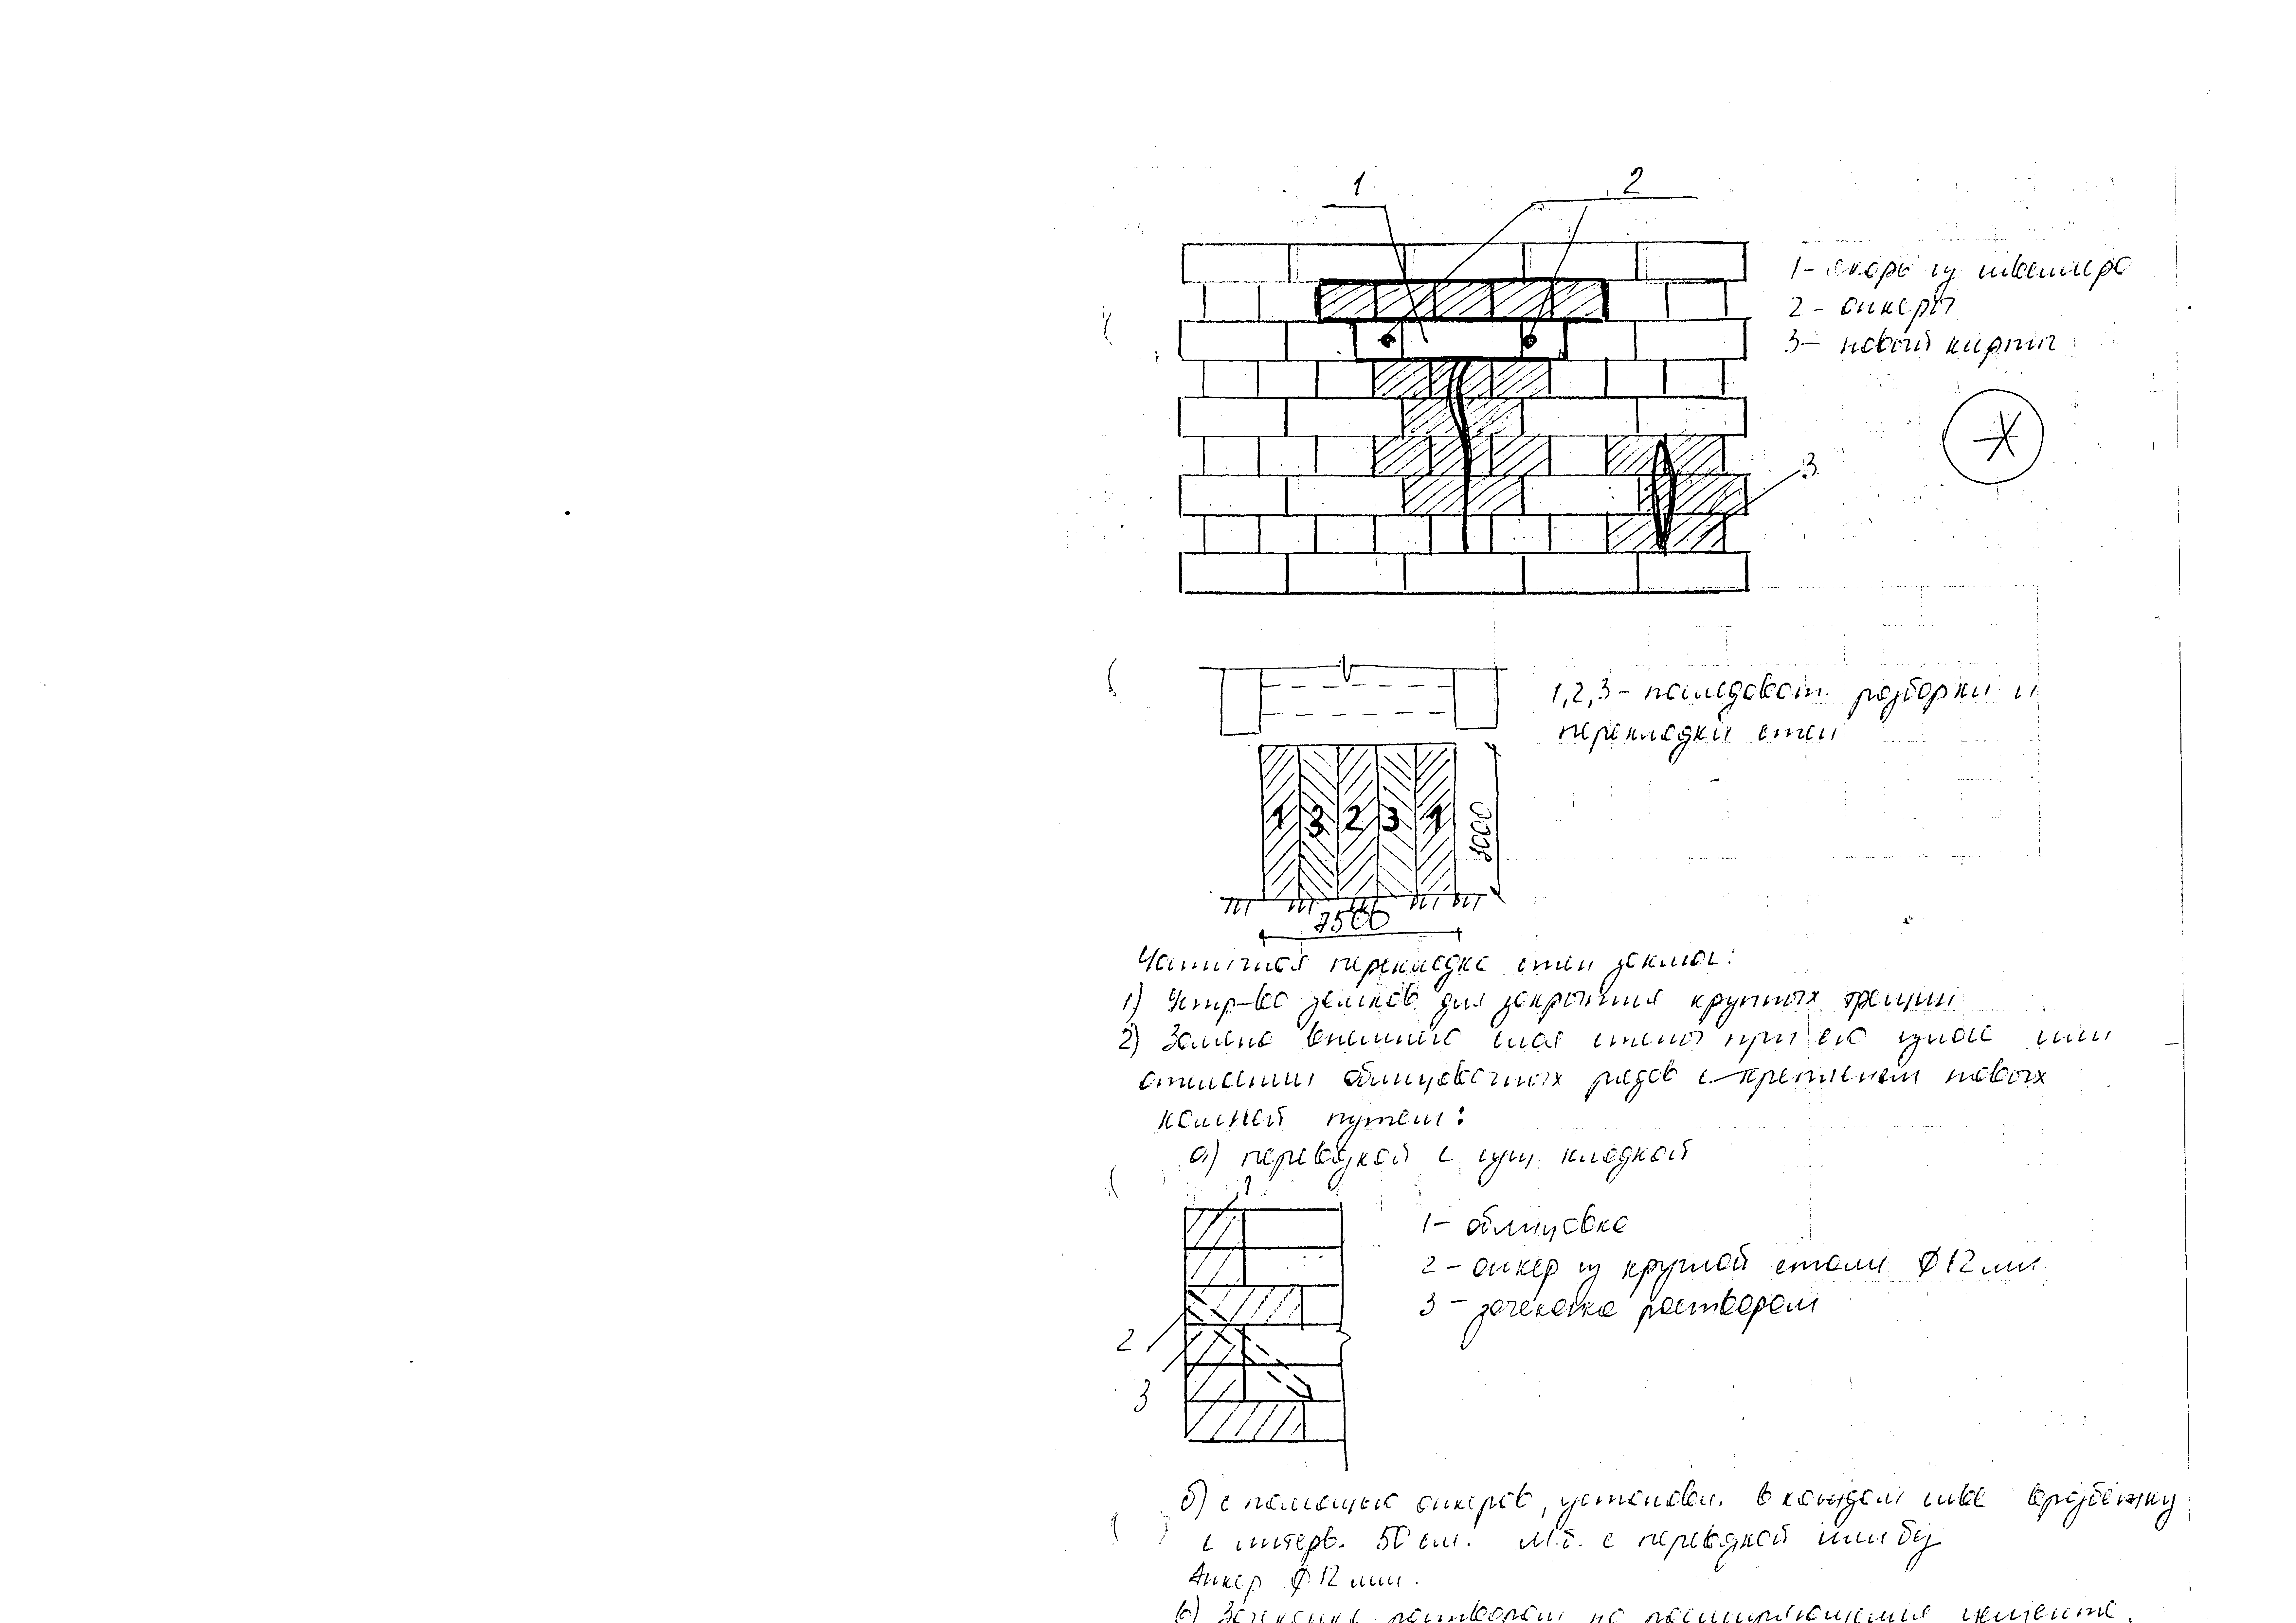 1
2
1- якорь из швеллера
2 - анкеры
3- новый кирпич
3
1,2,3 - последоват. разборки и
перекладки стен
1 3 2 3 1
3000
7500
Частичная перекладка стен заключ:
1) Устр-во замков для закрытия крупных трещин
2) Замена внешнего слоя стены при его износе или
отслоении облицовочных рядов с креплением новых
камней путем:
а) перевязкой с сущ. кладкой
1
1- облицовка
2 - анкер из круглой стали Ф 12 мм
3 - зачеканка раствором
2
3
б) с помощью анкеров, установл. в каждом шве вразбежку
с интерв. 50 см. М.б. с перевязкой или без
Анкер Ф 12 мм.
в) Зачеканка раствором на расширяющемся цементе.